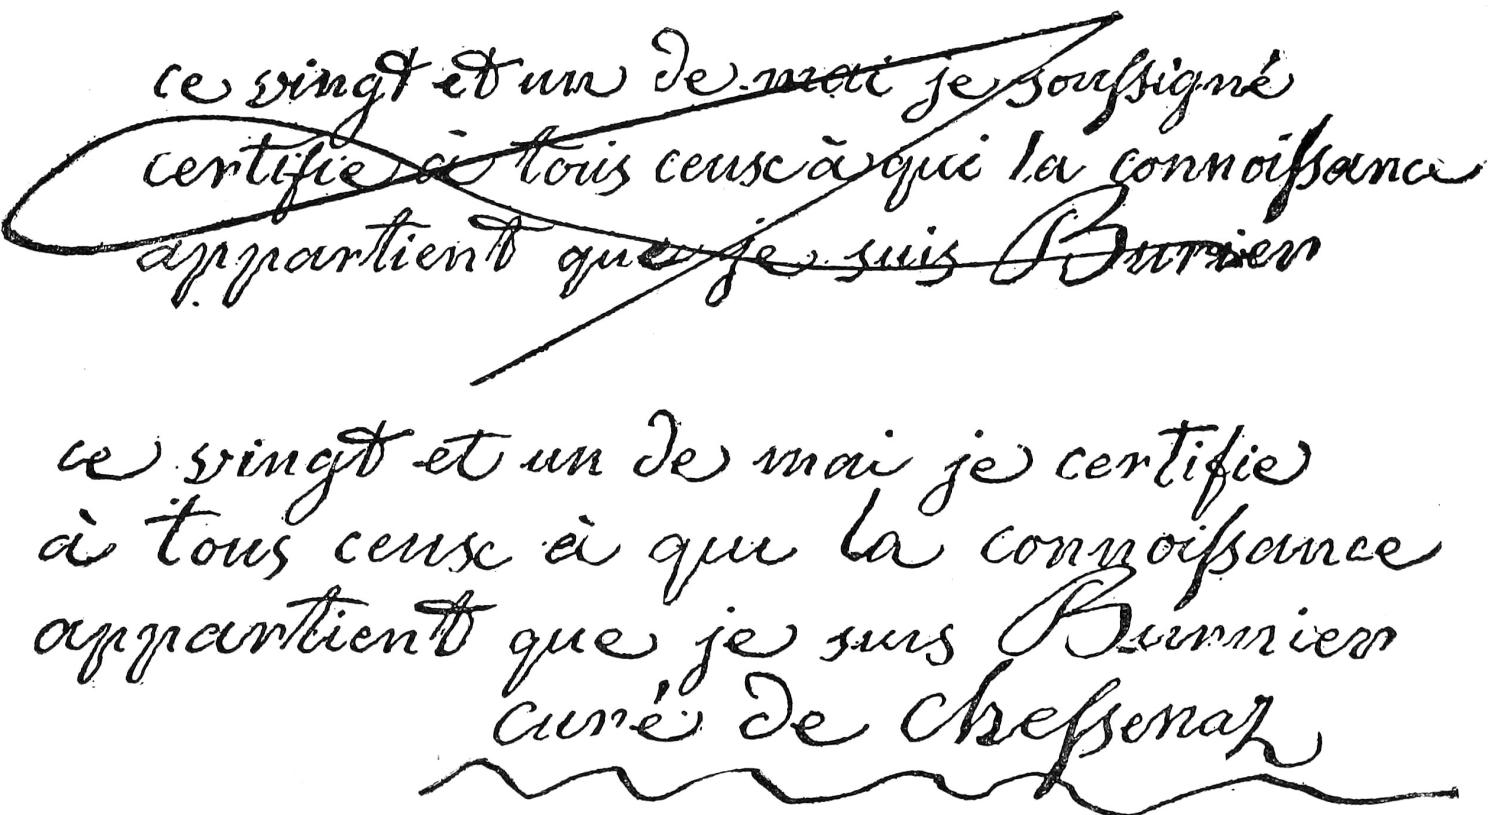 ce vingt et un de mai je soussigné
certifie à tous ceux à qui la connoissance
appartient que je suis Burnier
ce vingt et un de mai je certifie
à tous ceux à qui la connoissance
appartient que je suis Burnier
curé de Chessenaz